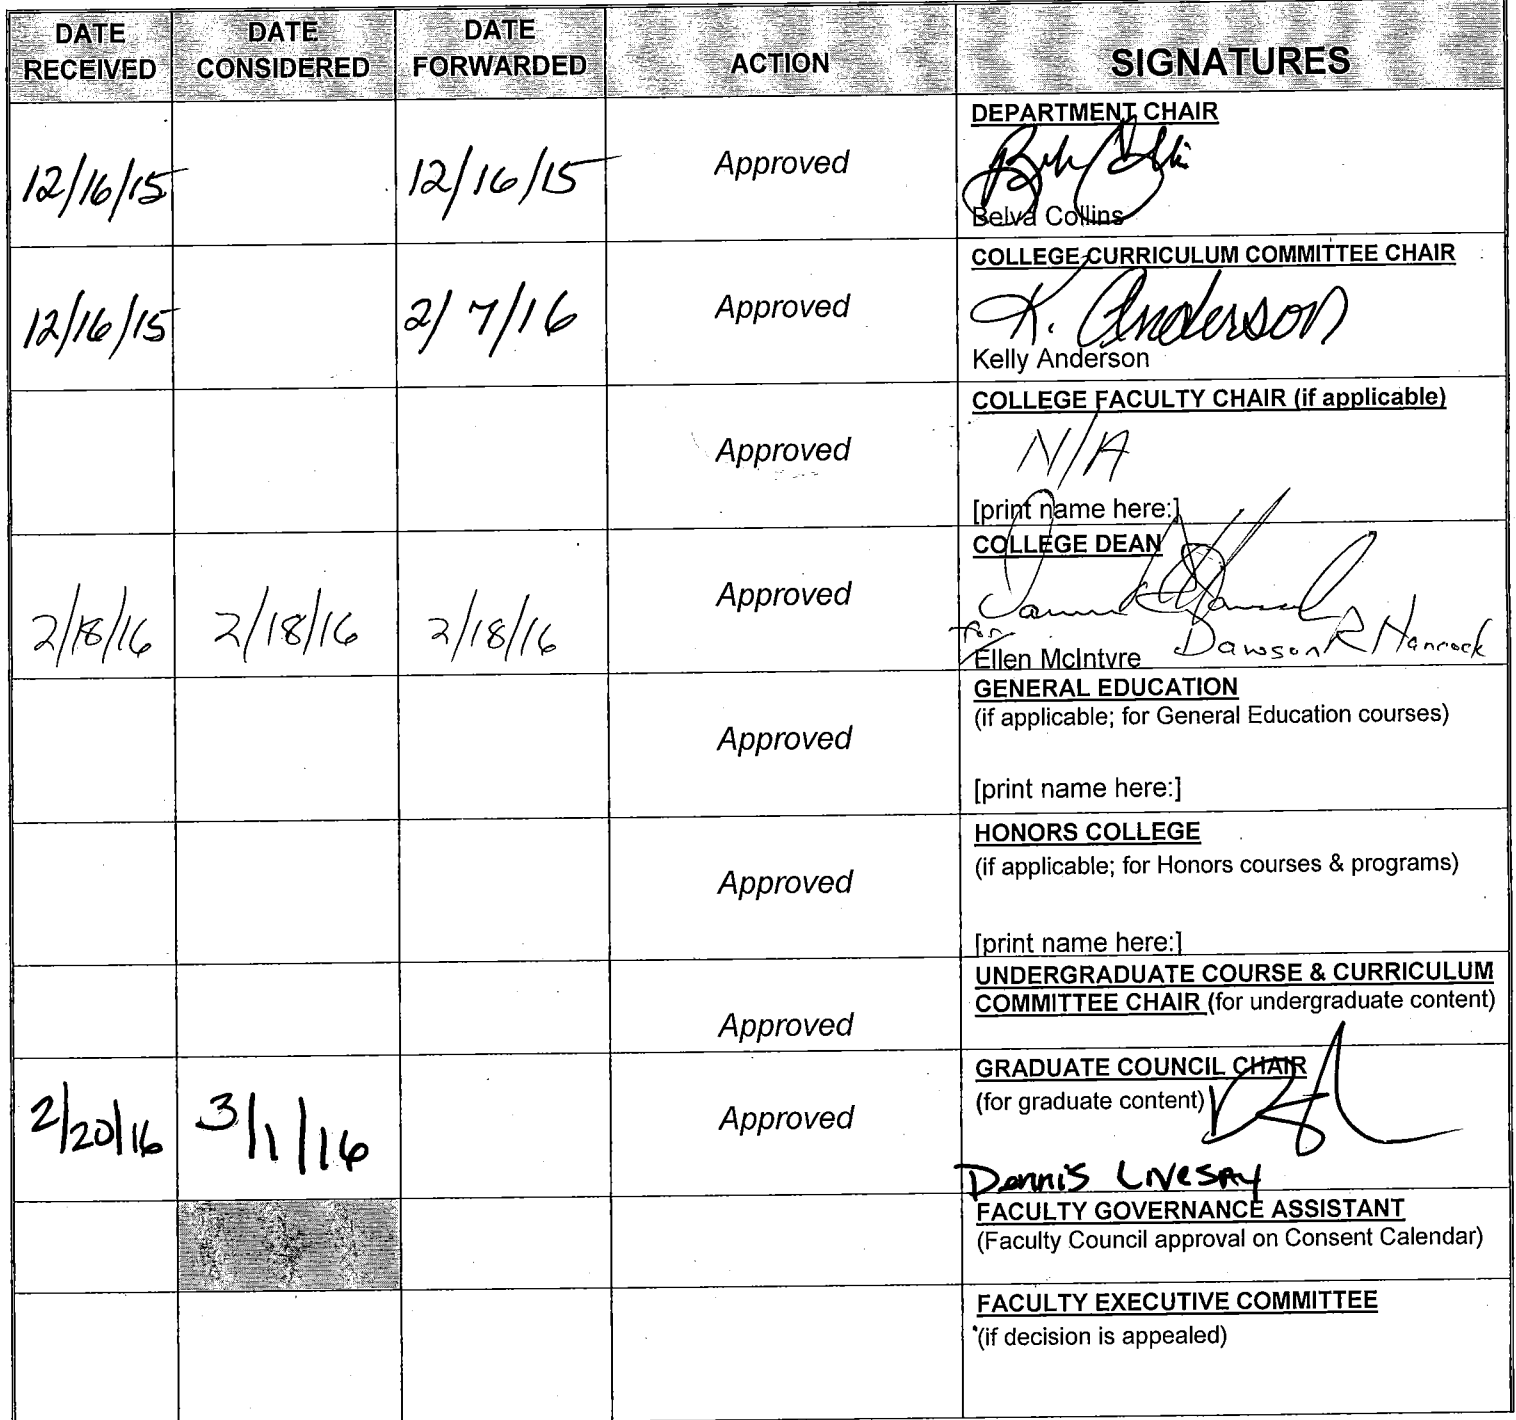 DATE RECEIVED
DATE CONSIDERED
DATE FORWARDED
ACTION
SIGNATURES
12/16/15
12/16/15
Approved
DEPARTMENT CHAIR
Belva Collins
12/16/15
2/7/16
Approved
COLLEGE CURRICULUM COMMITTEE CHAIR
K. Anderson
Kelly Anderson
Approved
COLLEGE FACULTY CHAIR (if applicable)
N/A
[print name here:]
2/18/16
2/18/16
2/18/16
Approved
COLLEGE DEAN
for
Ellen McIntyre
Dawson R Hancock
Approved
GENERAL EDUCATION
(if applicable; for General Education courses)
[print name here:]
Approved
HONORS COLLEGE
(if applicable; for Honors courses & programs)
[print name here:]
Approved
UNDERGRADUATE COURSE & CURRICULUM
COMMITTEE CHAIR (for undergraduate content)
2/20/16
3/1/16
Approved
GRADUATE COUNCIL CHAIR
(for graduate content)
Dennis Livesay
FACULTY GOVERNANCE ASSISTANT
(Faculty Council approval on Consent Calendar)
FACULTY EXECUTIVE COMMITTEE
(if decision is appealed)